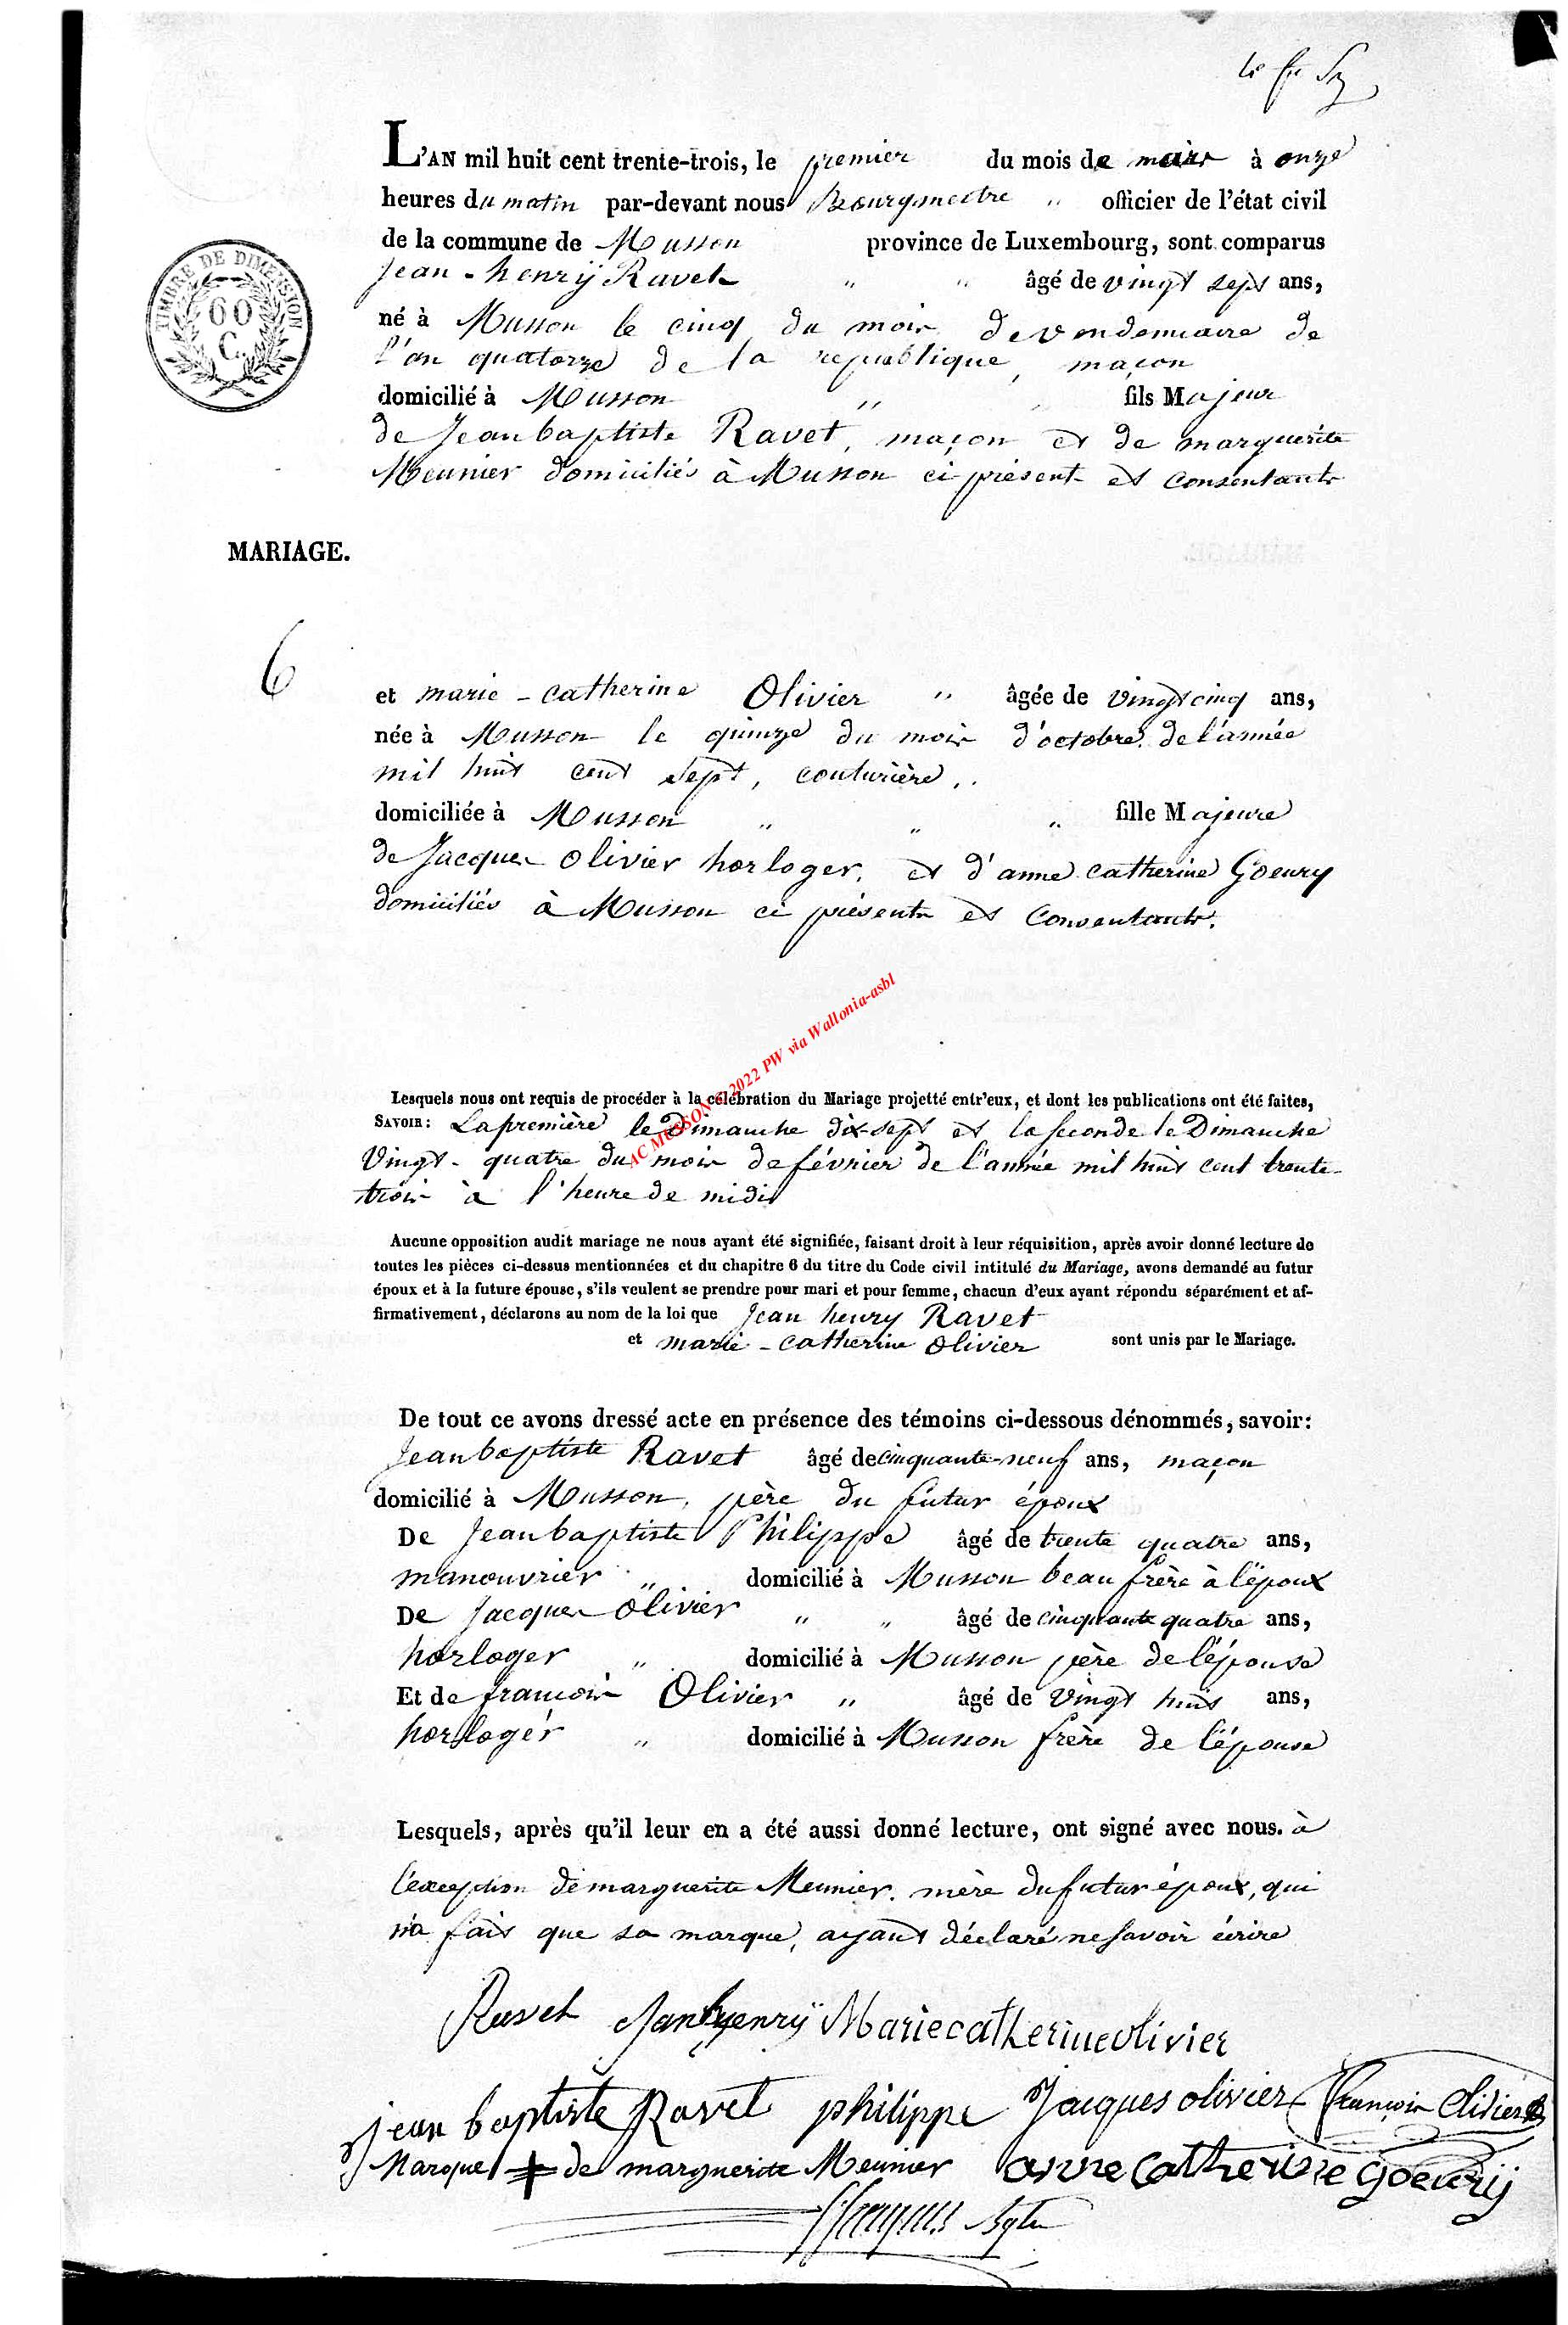 L'AN mil huit cent trente-trois, le premier du mois de mars à onze
heures du matin par-devant nous Bourgmestre " officier de l'état civil
de la commune de Musson province de Luxembourg, sont comparus
Jean-henrÿ Ravet " " âgé de vingt sept ans,
né à Musson le cinq du mois de vendemiaire de
l'an quatorze de la republique, maçon
domicilié à Musson " fils Majeur
de Jean baptiste Ravet, maçon et de marguerite
Meunier domiciliés à Musson ci présent et consentants
TIMBRE DE DIMENSION
60
C.
MARIAGE.
6
et marie-catherine Olivier " âgée de vingt cinq ans,
née à Musson le quinze du mois d'octobre de l'année
mil huit cent sept, couturière,.
domiciliée à Musson " " " fille Majeure
de Jacques Olivier horloger, et d'anne catherine Goeury
domiciliés à Musson ci présents et Consentants.
AC MUSSON © 2022 PW via Wallonia-asbl
Lesquels nous ont requis de procéder à la célébration du Mariage projetté entr'eux, et dont les publications ont été faites,
SAVOIR: La première le Dimanche dix-sept et la seconde le Dimanche
Vingt-quatre du mois de février de l'année mil huit cent trente-
trois à l'heure de midi
Aucune opposition audit mariage ne nous ayant été signifiée, faisant droit à leur réquisition, après avoir donné lecture de
toutes les pièces ci-dessus mentionnées et du chapitre 6 du titre du Code civil intitulé du Mariage, avons demandé au futur
époux et à la future épouse, s'ils veulent se prendre pour mari et pour femme, chacun d'eux ayant répondu séparément et af-
firmativement, déclarons au nom de la loi que Jean henry Ravet
et marie-catherine Olivier sont unis par le Mariage.
De tout ce avons dressé acte en présence des témoins ci-dessous dénommés, savoir:
Jean baptiste Ravet âgé de cinquante-neuf ans, maçon
domicilié à Musson, père du futur époux
De Jean baptiste Philippe âgé de trente quatre ans,
manouvrier " domicilié à Musson beau frère à l'époux
De Jacques Olivier " " âgé de cinquante quatre ans,
horloger " domicilié à Musson père de l'épouse
Et de francois Olivier " âgé de Vingt huit ans,
horloger " domicilié à Musson frère de l'épouse
Lesquels, après qu'il leur en a été aussi donné lecture, ont signé avec nous. à
l'exception de marguerite Meunier, mère du futur époux, qui
n'a fait que sa marque, ayant déclaré ne savoir écrire
Ravet Jan henrÿ Marie catherine olivier
jean baptiste Ravet philippe Jacques olivier François Olivier
Marque de marguerite Meunier anne Catherine goeurÿ